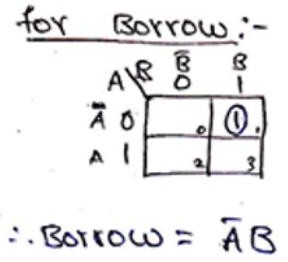 for Borrow:-
B̅ B
A\B 0 1
A̅ 0 0 1 1
A 1 2 3
∴ Borrow = A̅B